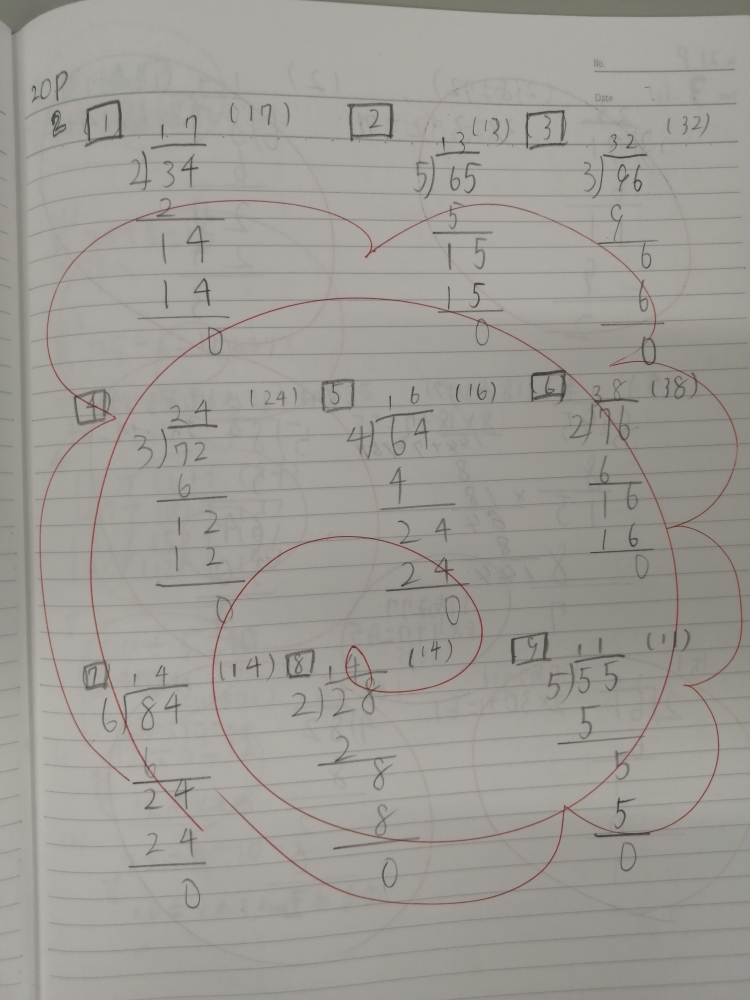 No.
Date
20P
1 17 (17)
2)34
2
14
14
0
2 13 (13)
5)65
5
15
15
0
3 32 (32)
3)96
9
6
6
0
4 24 (24)
3)72
6
12
12
0
5 16 (16)
4)64
4
24
24
0
6 38 (38)
2)76
6
16
16
0
7 14 (14)
6)84
6
24
24
0
8 14 (14)
2)28
2
8
8
0
9 11 (11)
5)55
5
5
5
0